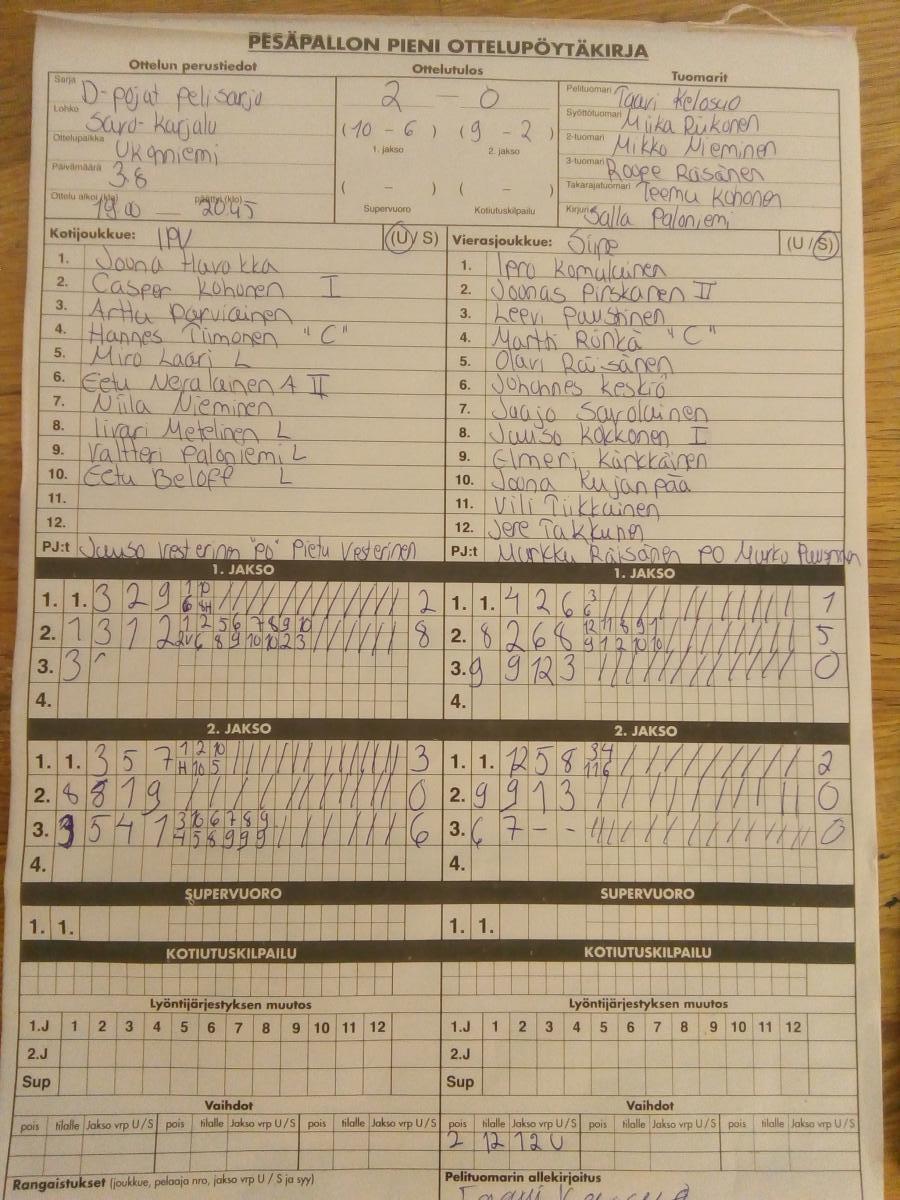 PESÄPALLON PIENI OTTELUPÖYTÄKIRJA
Ottelun perustiedot
Sarja D-pojat pelisarja
Lohko Savo-Karjala
Ottelupaikka Ukonniemi
Päivämäärä 3.8
Ottelu alkoi (klo) 19.00 — päättyi (klo) 20.45
Ottelutulos
2 — 0
(10 - 6) (9 - 2)
1. jakso 2. jakso
( - ) ( - )
Supervuoro Kotiutuskilpailu
Tuomarit
Pelituomari Taavi Kelosuo
Syöttötuomari Miika Riikonen
2-tuomari Mikko Nieminen
3-tuomari Roope Räsänen
Takarajatuomari Teemu Kohonen
Kirjuri Salla Paloniemi
Kotijoukkue: IPV (U/S)
1. Joona Havukka
2. Casper Kohonen I
3. Arttu Parviainen
4. Hannes Tiimonen "C"
5. Miro Laari L
6. Eetu Neralainen A II
7. Niila Nieminen
8. Iivari Metelinen L
9. Valtteri Paloniemi L
10. Eetu Beloff L
11.
12.
PJ:t Juuso Vesterinen "PO" Pietu Vesterinen
Vierasjoukkue: Siipe (U/S)
1. Ipro Komulainen
2. Joonas Pirskanen II
3. Leevi Puustinen
4. Martti Rönkä "C"
5. Olavi Räisänen
6. Johannes Keskiö
7. Jaajo Savolainen
8. Juuso Kokkonen I
9. Elmeri Kärkkäinen
10. Joona Kujanpää
11. Vili Tiikkainen
12. Jere Takkunen
PJ:t Markku Räisänen PO Marko Puustinen
1. JAKSO
1. 1. 3 2 9 2
2. 1 3 1 2 8
3. 3
4.
2. JAKSO
1. 1. 3 5 7 3
2. 8 8 1 9 0
3. 3 5 4 1 6
4.
SUPERVUORO
1. 1.
KOTIUTUSKILPAILU
Lyöntijärjestyksen muutos
1.J 1 2 3 4 5 6 7 8 9 10 11 12
2.J
Sup
Vaihdot
pois tilalle Jakso vrp U/S pois tilalle Jakso vrp U/S pois tilalle Jakso vrp U/S
Rangaistukset (joukkue, pelaaja nro, jakso vrp U / S ja syy)
1. JAKSO
1. 1. 4 2 6 1
2. 8 2 6 8 5
3. 9 9 12 3 0
4.
2. JAKSO
1. 1. 12 5 8 2
2. 9 9 1 3 0
3. 6 7 - - 0
4.
SUPERVUORO
1. 1.
KOTIUTUSKILPAILU
Lyöntijärjestyksen muutos
1.J 1 2 3 4 5 6 7 8 9 10 11 12
2.J
Sup
Vaihdot
pois tilalle Jakso vrp U/S pois tilalle Jakso vrp U/S pois tilalle Jakso vrp U/S
2 12 1 2 U
Pelituomarin allekirjoitus